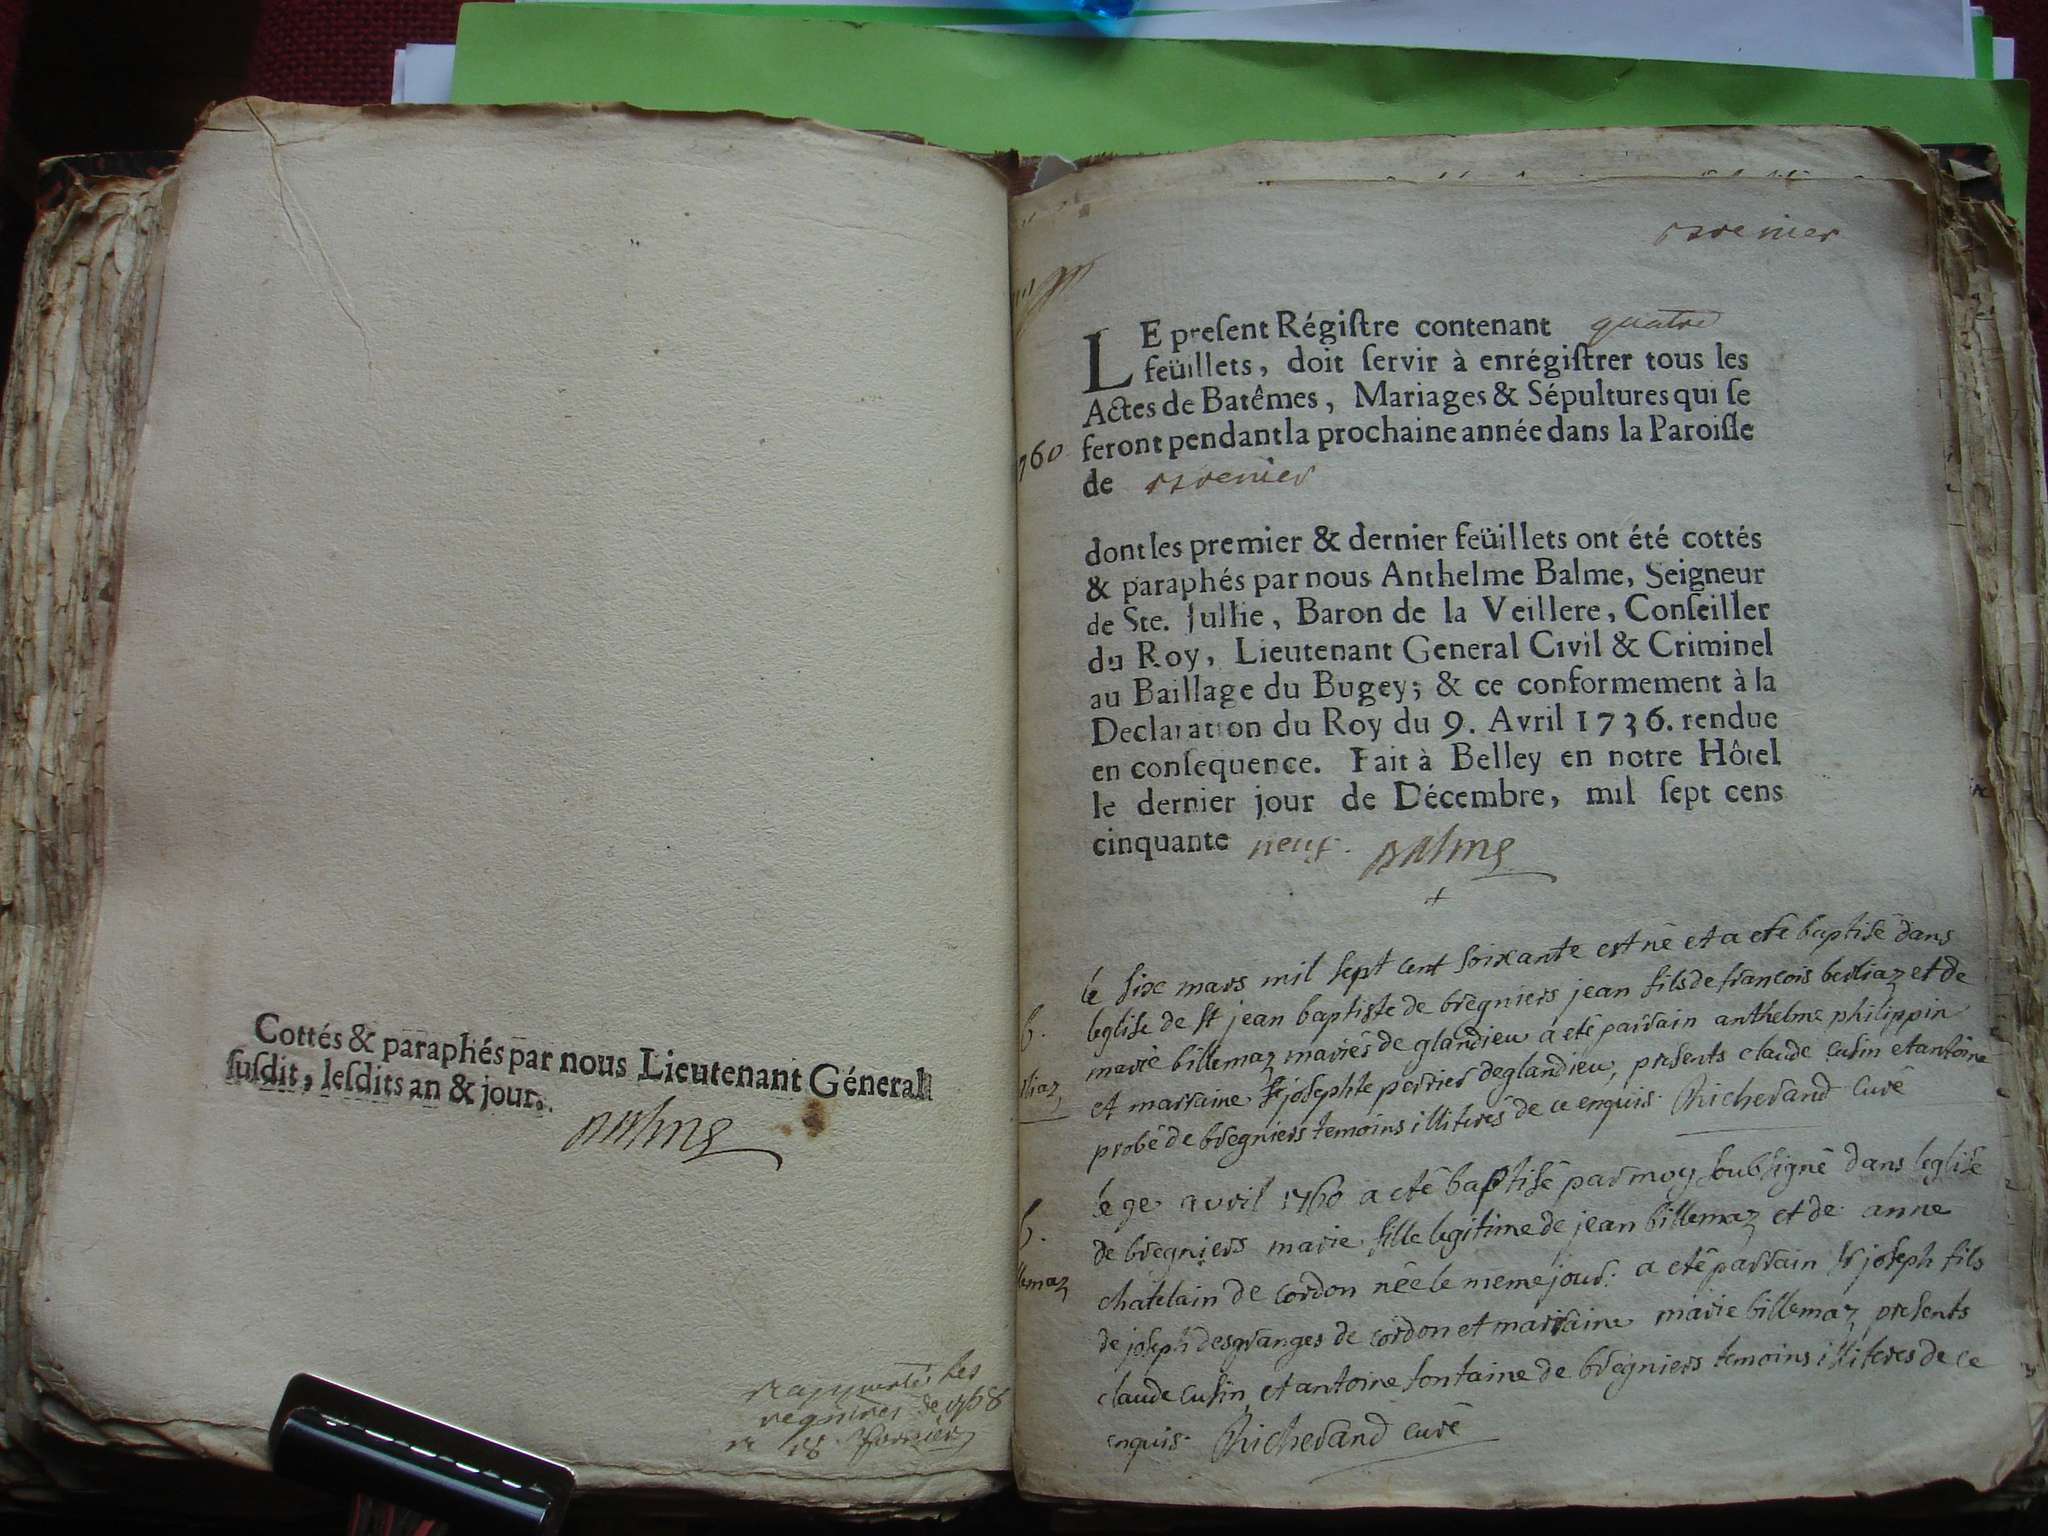 Cottés & paraphés par nous Lieutenant Géneral
ſuſdit, leſdits an & jour.
Balme
regiſtres de 1758
brenier
LE preſent Régiſtre contenant quatre
feüillets, doit ſervir à enrégiſtrer tous les
Actes de Batêmes, Mariages & Sépultures qui ſe
feront pendant la prochaine année dans la Paroiſſe
de brenier
760
dont les premier & dernier feüillets ont été cottés
& paraphés par nous Anthelme Balme, Seigneur
de Ste. Jullie, Baron de la Veillere, Conſeiller
du Roy, Lieutenant General Civil & Criminel
au Baillage du Bugey; & ce conformement à la
Declaration du Roy du 9. Avril 1736. rendue
en conſequence. Fait à Belley en notre Hôtel
le dernier jour de Décembre, mil ſept cens
cinquante neuf. Balme
+
le sixe mars mil sept cent soixante est né et a eté baptisé dans
b. leglise de st jean baptiste de bregniers jean fils de francois berliaz et de
marie billemaz mariés de glandieu a eté parrain anthelme philippin
rliaz et marraine josephte perrier de glandieu, presents claude cusin et antoine
probé de bregniers temoins illiteres de ce enquis. Richerand curé
le 9e avril 1760 a eté baptisé par moy soubsigné dans leglise
b. de bregniers marie fille legitime de jean billemaz et de anne
lemaz chatelain de cordon née le meme jour. a eté parrain sr joseph fils
de joseph desgranges de cordon et marraine marie billemaz presents
claude cusin et antoine fontaine de bregniers temoins illiteres de ce
enquis. Richerand curé